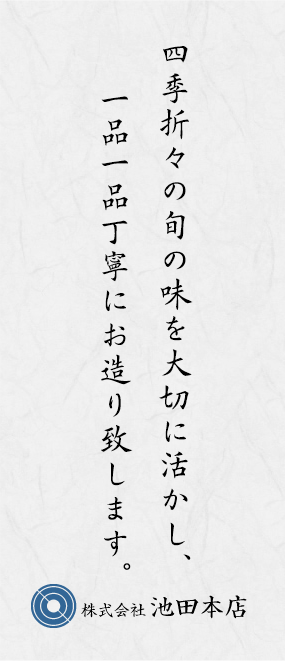 四季折々の旬の味を大切に活かし、
一品一品丁寧にお造り致します。
株式会社 池田本店